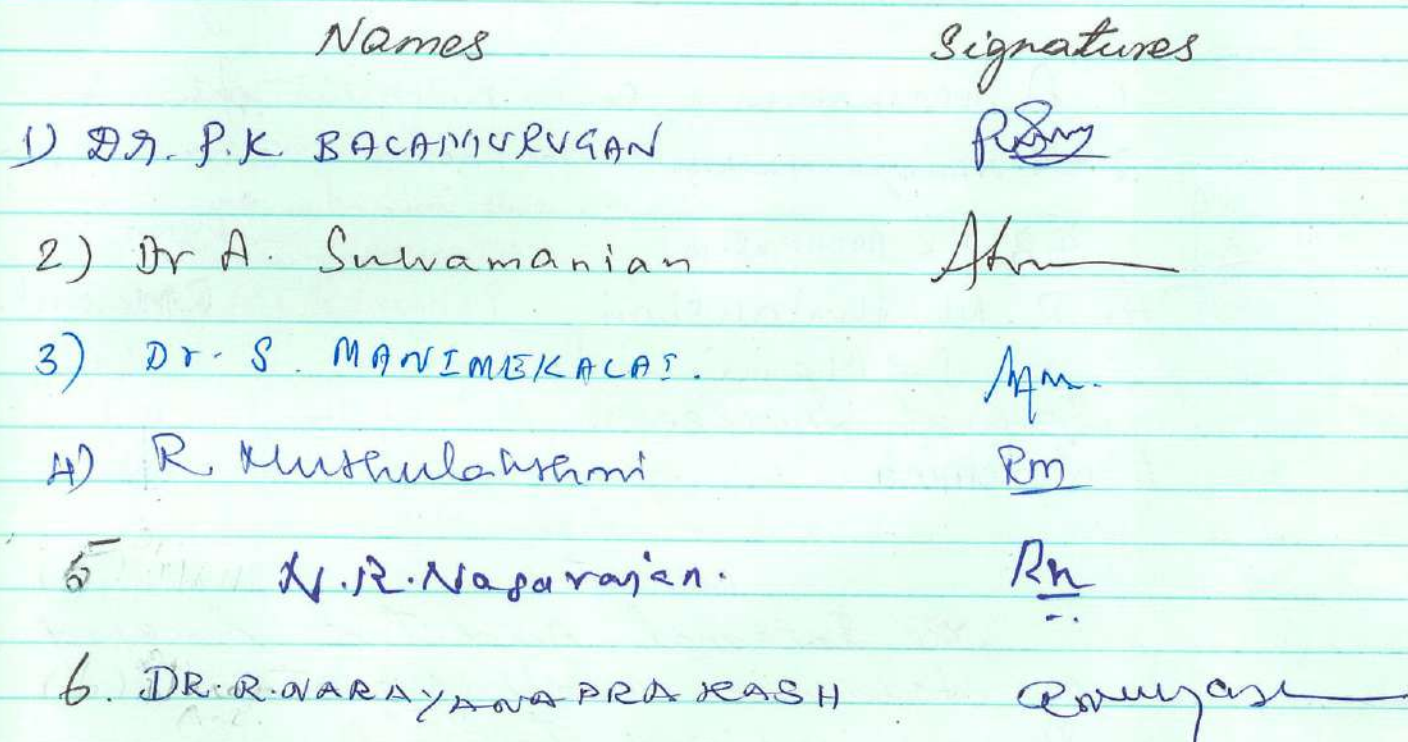 Names Signatures
1) DR. P.K. BALAMURUGAN
2) Dr A. Subramanian
3) Dr. S. MANIMEKALAI.
4) R. Muthulakshmi Rm
5 N.R. Nagarajan. Rn
6. DR. R. NARAYANA PRAKASH